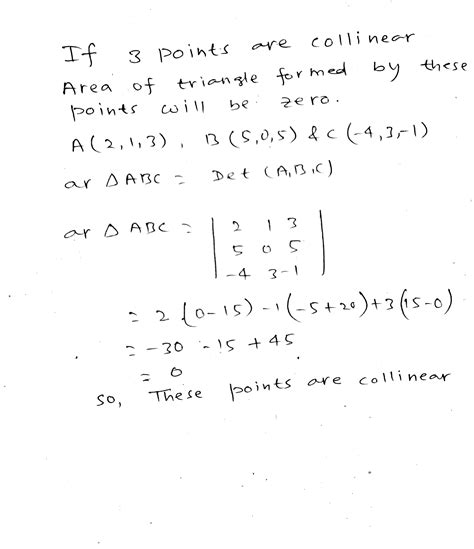 If 3 points are collinear
Area of triangle formed by these
points will be zero.
A(2,1,3), B(5,0,5) & C(-4,3,-1)
ar △ABC = Det (A,B,C)
ar △ ABC = | 2 1 3 |
| 5 0 5 |
| -4 3 -1 |
= 2 (0-15) -1(-5+20)+3(15-0)
= -30 -15 + 45
= 0
so, These points are collinear